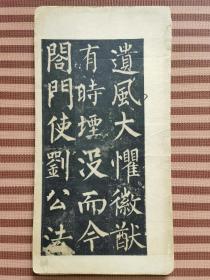 遺風大懼徽猷
有時堙没而今
閤門使劉公法